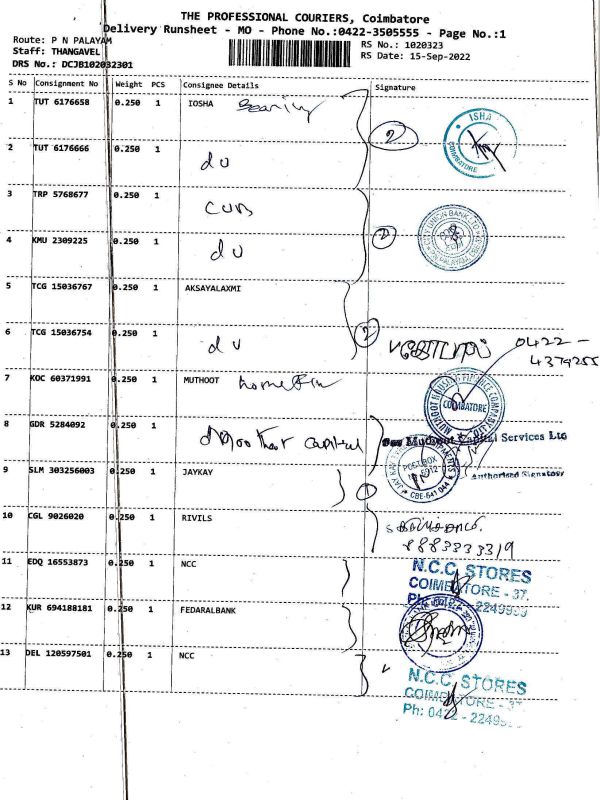 THE PROFESSIONAL COURIERS, Coimbatore
Delivery Runsheet - MO - Phone No.:0422-3505555 - Page No.:1
Route: P N PALAYAM
RS No.: 1020323
Staff: THANGAVEL
RS Date: 15-Sep-2022
DRS No.: DCJB102032301
S No Consignment No Weight PCS Consignee Details Signature
1 TUT 6176658 0.250 1 IOSHA Bearing
2 ISHA COIMBATORE
2 TUT 6176666 0.250 1 du
3 TRP 5768677 0.250 1 CUB
2 CITY UNION BANK LTD
4 KMU 2309225 0.250 1 du
5 TCG 15036767 0.250 1 AKSAYALAXMI
2
6 TCG 15036754 0.250 1 du
0422-
4379255
7 KOC 60371991 0.250 1 MUTHOOT home Fin
MUTHOOT HOUSING FINANCE COMPANY LTD COIMBATORE
8 GDR 5284092 0.250 1 Moothoot capital
For Muthoot Capital Services Ltd
Authorised Signatory
9 SLM 303256003 0.250 1 JAYKAY
1 POST BOX CBE-641 044
10 CGL 9026020 0.250 1 RIVILS
8883333319
11 EDQ 16553873 0.250 1 NCC
N.C.C. STORES
COIMBATORE - 37.
Ph: 0422 - 2249959
12 KUR 694188181 0.250 1 FEDARALBANK
13 DEL 120597501 0.250 1 NCC
N.C.C. STORES
COIMBATORE - 37
Ph: 0422 - 2249